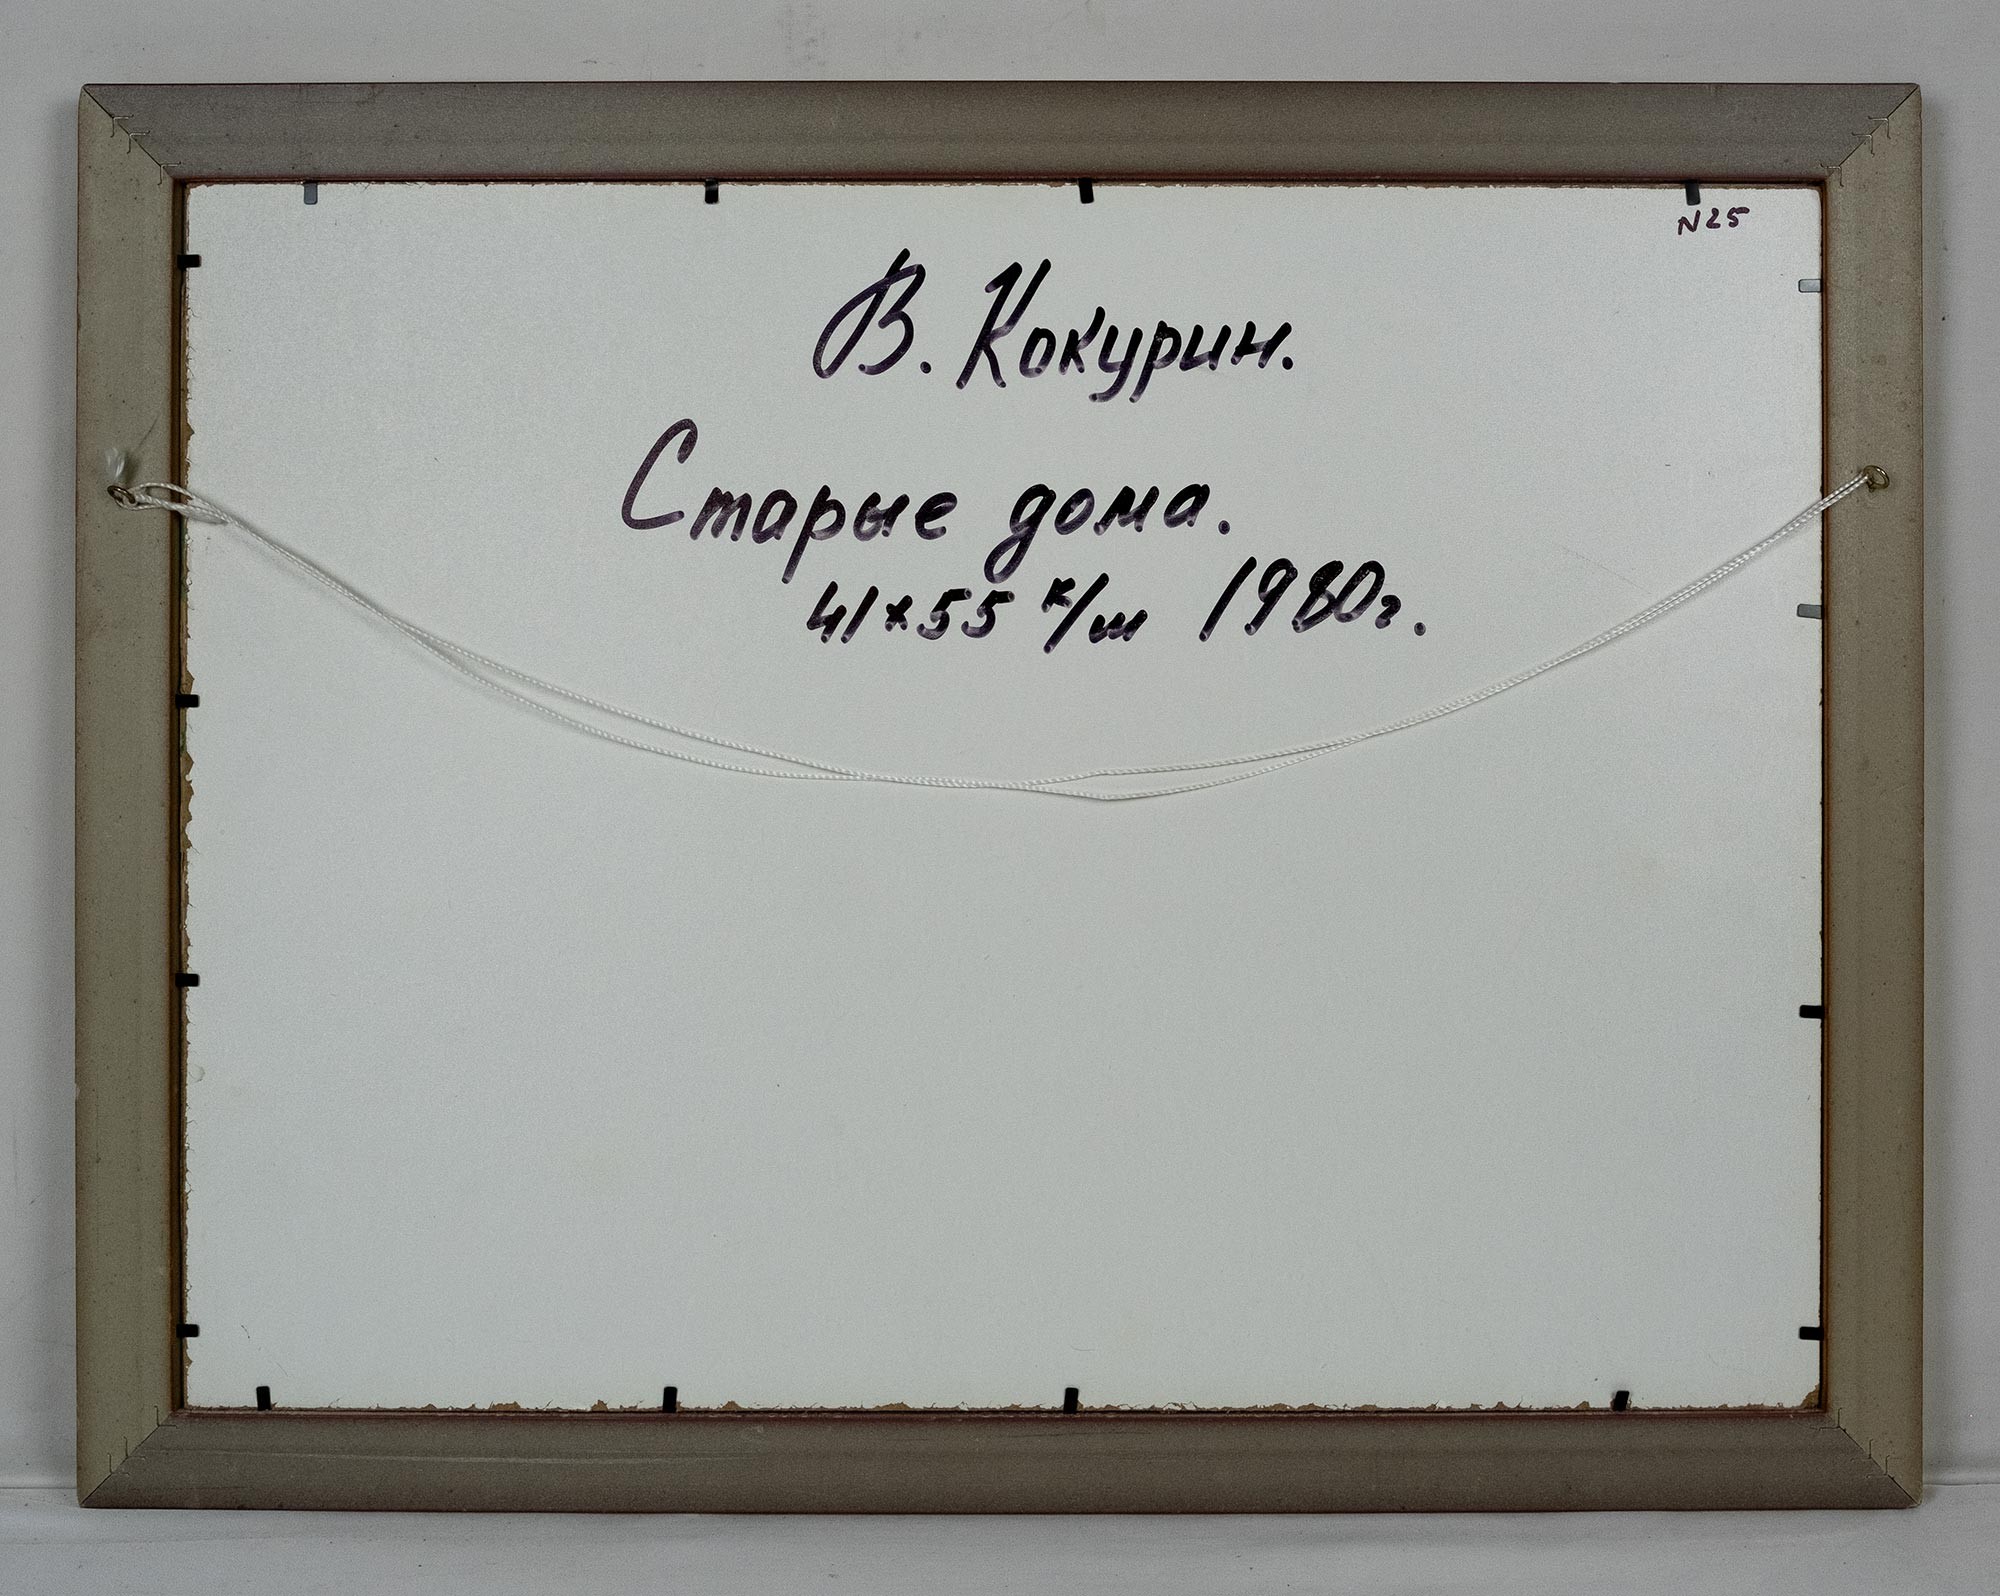 N25
В. Кокурин.
Старые дома.
41×55 к/м 1980г.